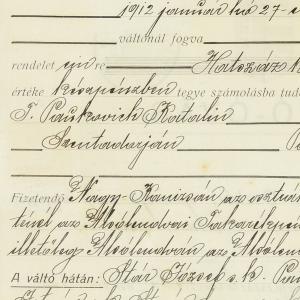 1912 január hó 27-é
váltónál fogva
rendelet én re Hatszáz k
értéke készpénzben tegye számolásba tud
T. Pankovich Katalin
Szentadorján
Fizetendő Nagy-Kanizsán az osztrá
ténél az Alsólendvai Takarékpén
illetőleg Alsólendván az Alsólen
A váltó hátán: Stár József s. k.